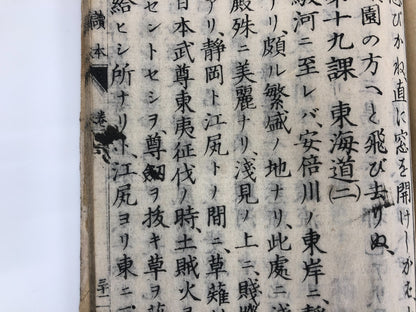 飛びかね直に窓を開けしかば
園の方へと飛び去りぬ、
第十九課 東海道(二)
駿河ニ至レバ、安倍川ノ東岸ニ、静
リ、頗ル繁盛ノ地ナリ、此處ニ浅
殿殊ニ美麗ナリ、浅見ノ上ニ、賤機
アリ、静岡ト江尻トノ間ニ、草薙
日本武尊東夷征伐ノ時、土賊火ヲ
セントセシヲ尊劔ヲ抜キ草ヲ
給ヒシ所ナリト、江尻ヨリ東ニ
讀本 巻六 三十一